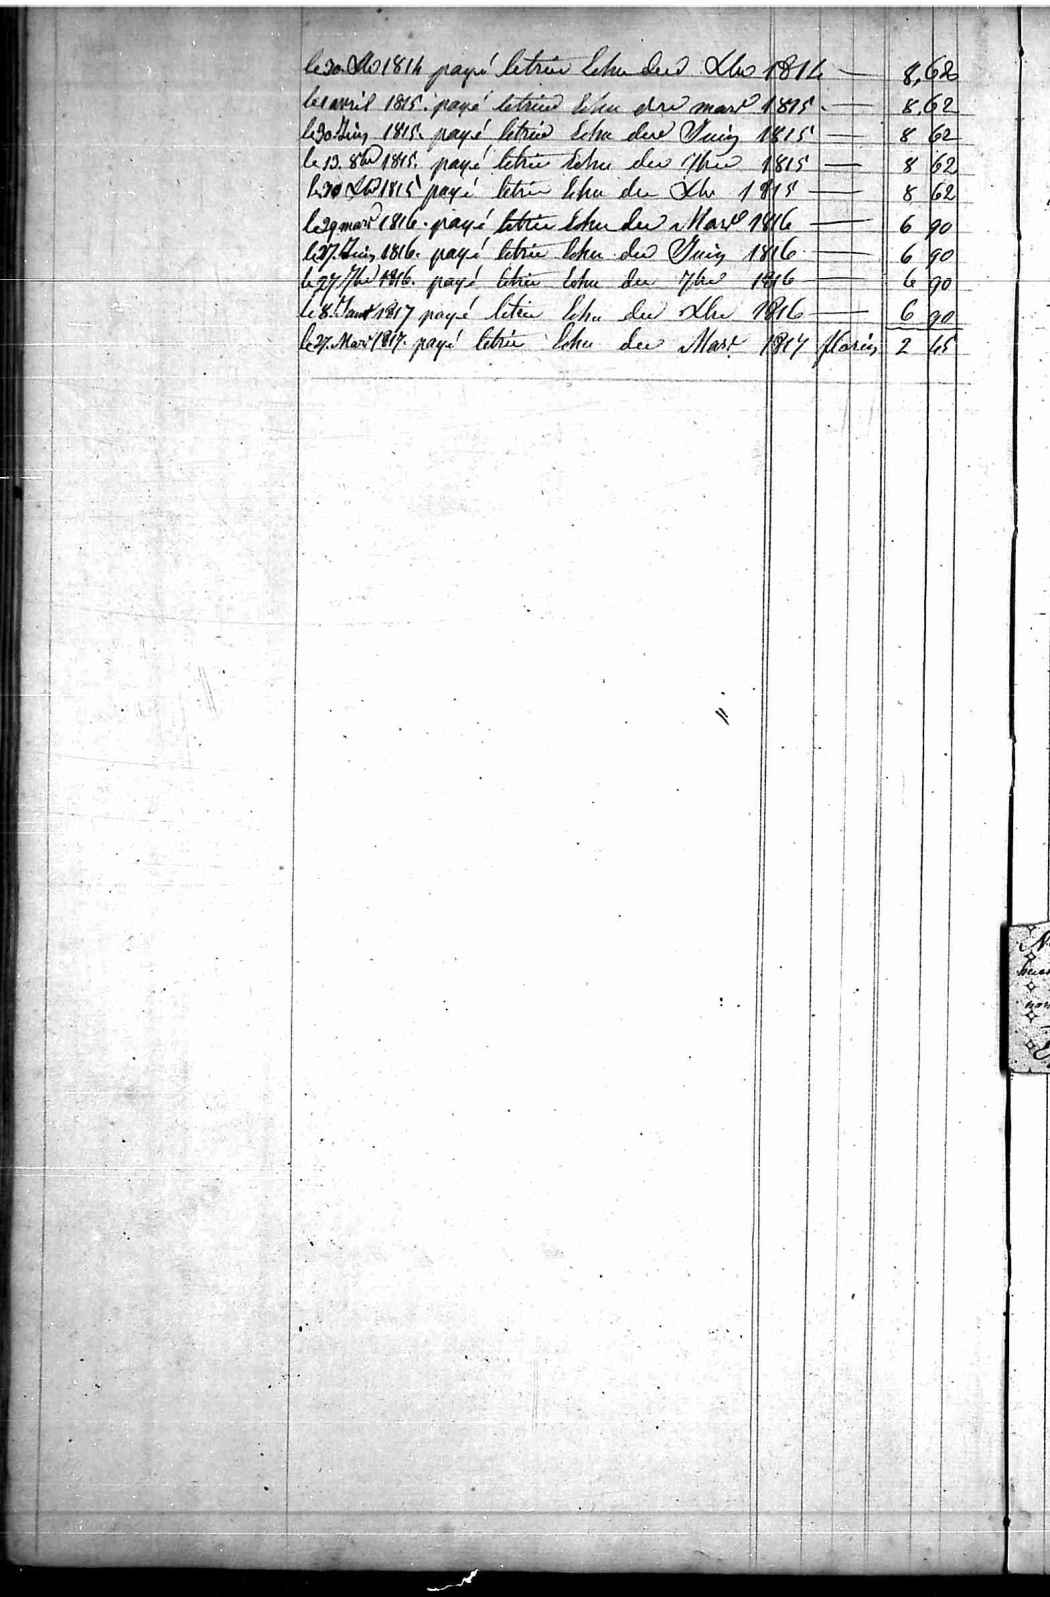 le 30 Xbr 1814 payé letrim Echu du Xbr 1814 — 8,62
le 1 avril 1815. payé letrim Echu du mars 1815. — 8,62
le 30 Juin 1815. payé letrim Echu du Juin 1815 — 8 62
le 13. 8bre 1815. payé letrim Echu du 7bre 1815 — 8 62
le 30 Xbr 1815 payé letrim Echu du Xbr 1815 — 8 62
le 29 mars 1816. payé letrim Echu du Mars 1816 — 6 90
le 27. Juin 1816. payé letrim Echu du Juin 1816. — 6 90
le 27 7bre 1816. payé letrim Echu du 7bre 1816 — 6 90
le 8. Janv 1817 payé letrim Echu du Xbr 1816 — 6 90
le 27. Mars 1817. payé letrim Echu du Mars 1817 florins 2 45